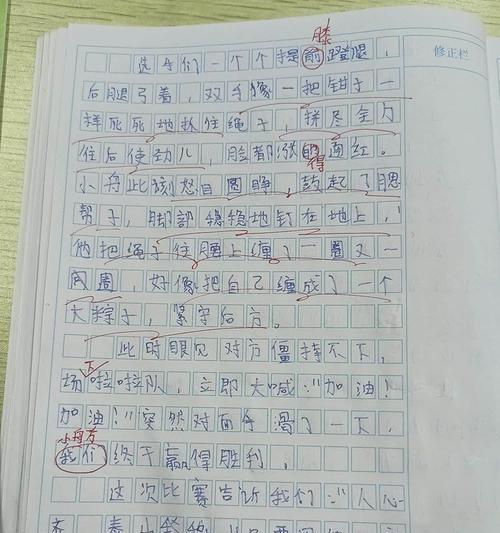 膝
选手们一个个提前蹬腿，
修正栏
后腿弓着，双手像一把钳子一
样死死地扒住绳子，拼尽全力
往后使劲儿，脸都涨的通红。
得
小舟此刻怒目圆睁，鼓起了腮
帮子，脚部稳稳地钉在地上，
他把绳子往腰上缠了一圈又一
圈，好像把自己缠成了一个
大粽子，紧守后方。
此时眼见对方僵持不下，
下
场啦啦队，立即大喊："加油！
加油！"突然对面手滑了一下，
小舟方
我们终于赢得胜利，
这次比赛告诉我们："人心
齐，泰山移